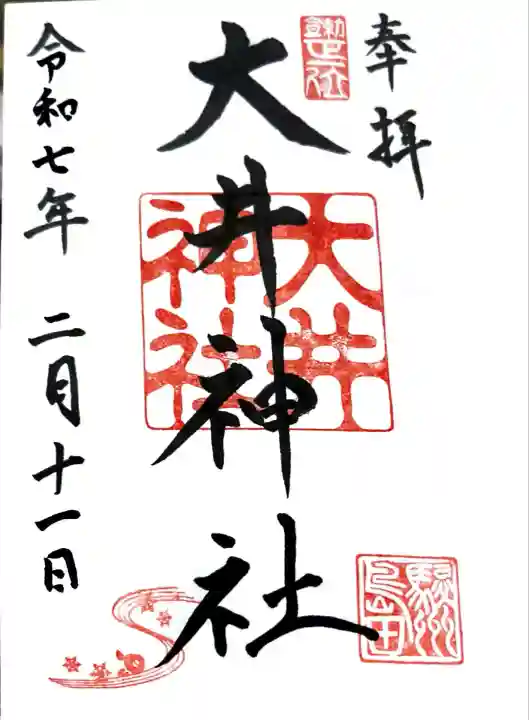 奉拝
大井神社
大井神社
駿州島田
令和七年 二月十一日